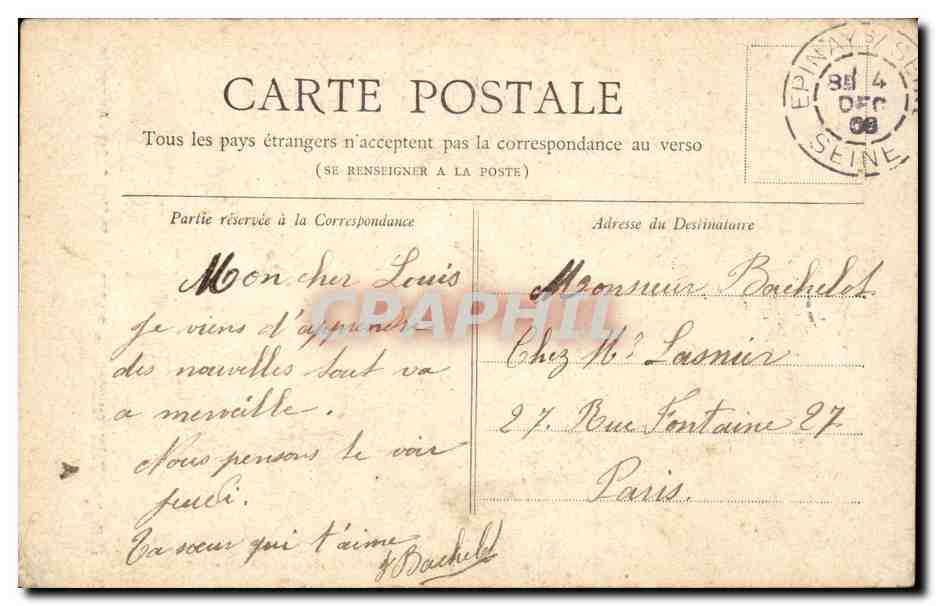 CARTE POSTALE
Tous les pays étrangers n'acceptent pas la correspondance au verso
(SE RENSEIGNER A LA POSTE)
EPINAY S/ SEINE
4
DEC
08
SEINE
Partie réservée à la Correspondance
Mon cher Louis
Je viens d'apprendre
des nouvelles tout va
a merveille.
Nous pensons te voir
jeudi.
Ta sœur qui t'aime
Bachelot
Adresse du Destinataire
Monsieur Bachelot
Chez Mr Lasnier
27. Rue Fontaine 27
Paris.
CPAPHIL